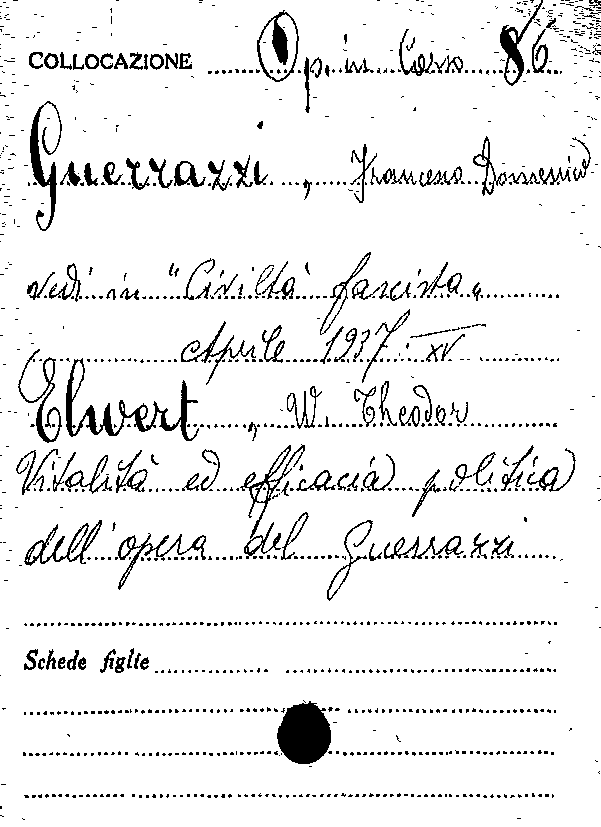 COLLOCAZIONE Op. in Corso 86
Guerrazzi, Francesco Domenico
vedi in "Civiltà fascista"
Aprile 1937. XV
Elwert, W. Theodor
Vitalità ed efficacia politica
dell'opera del Guerrazzi
Schede figlie